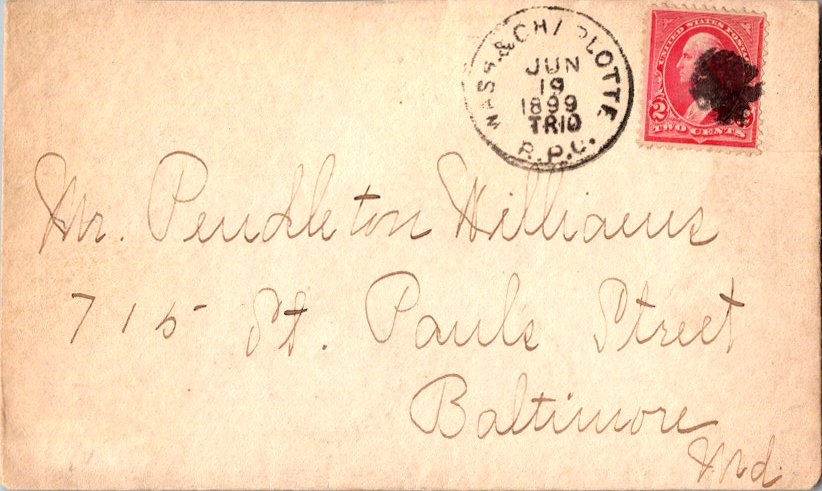 WASH. & CHARLOTTE
JUN
19
1899
TR10
R.P.O.
UNITED STATES POSTAGE
2
TWO CENTS
Mr. Pendleton Williams
715 St. Pauls Street
Baltimore
Md.